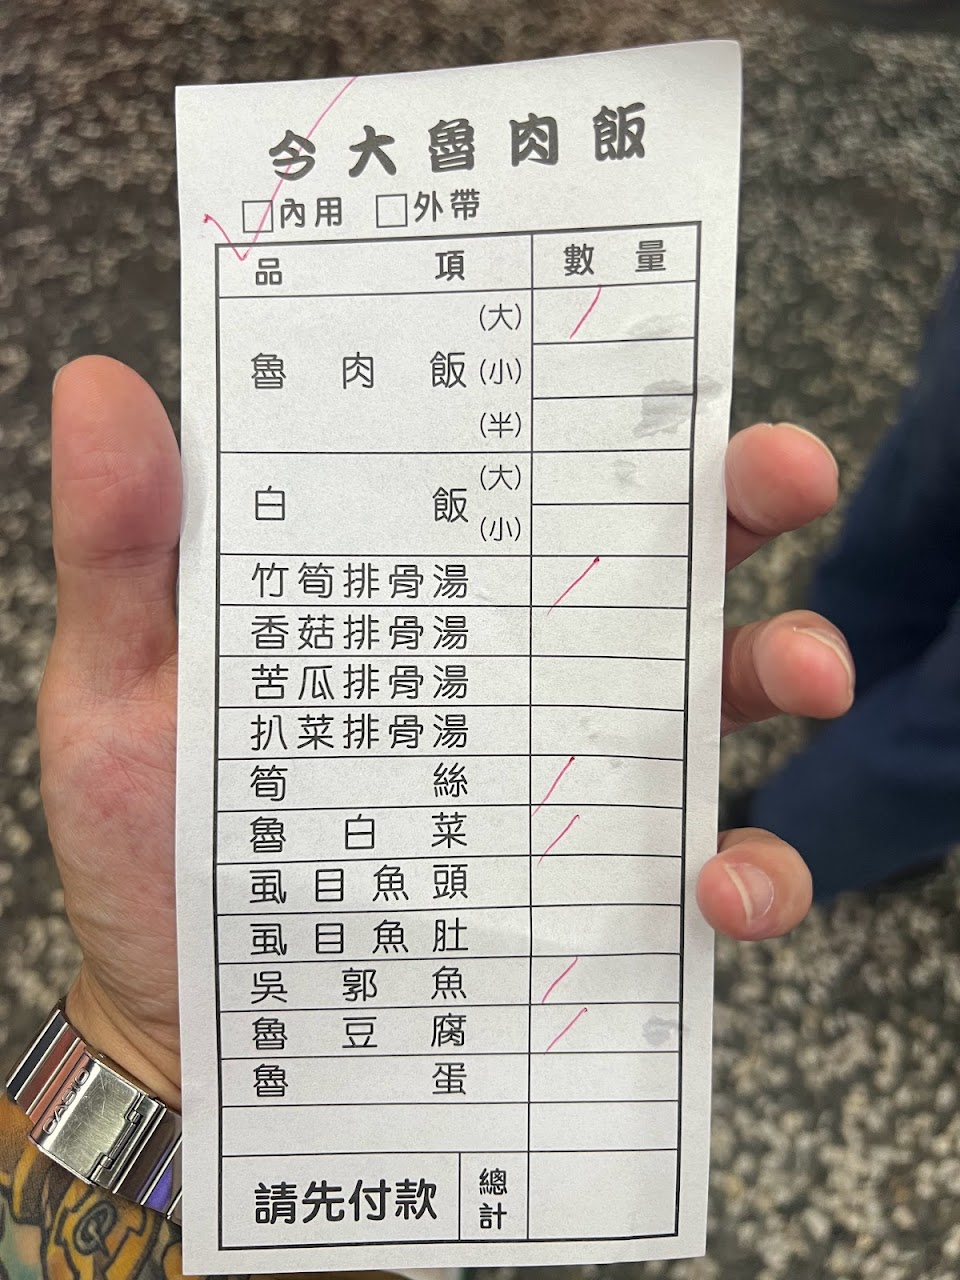 今大魯肉飯
□內用 □外帶
品項 數量
魯肉飯 (大) /
(小)
(半)
白飯 (大)
(小)
竹筍排骨湯 /
香菇排骨湯
苦瓜排骨湯
扒菜排骨湯
筍絲 /
魯白菜 /
虱目魚頭
虱目魚肚
吳郭魚 /
魯豆腐 /
魯蛋
請先付款 總計
CASIO